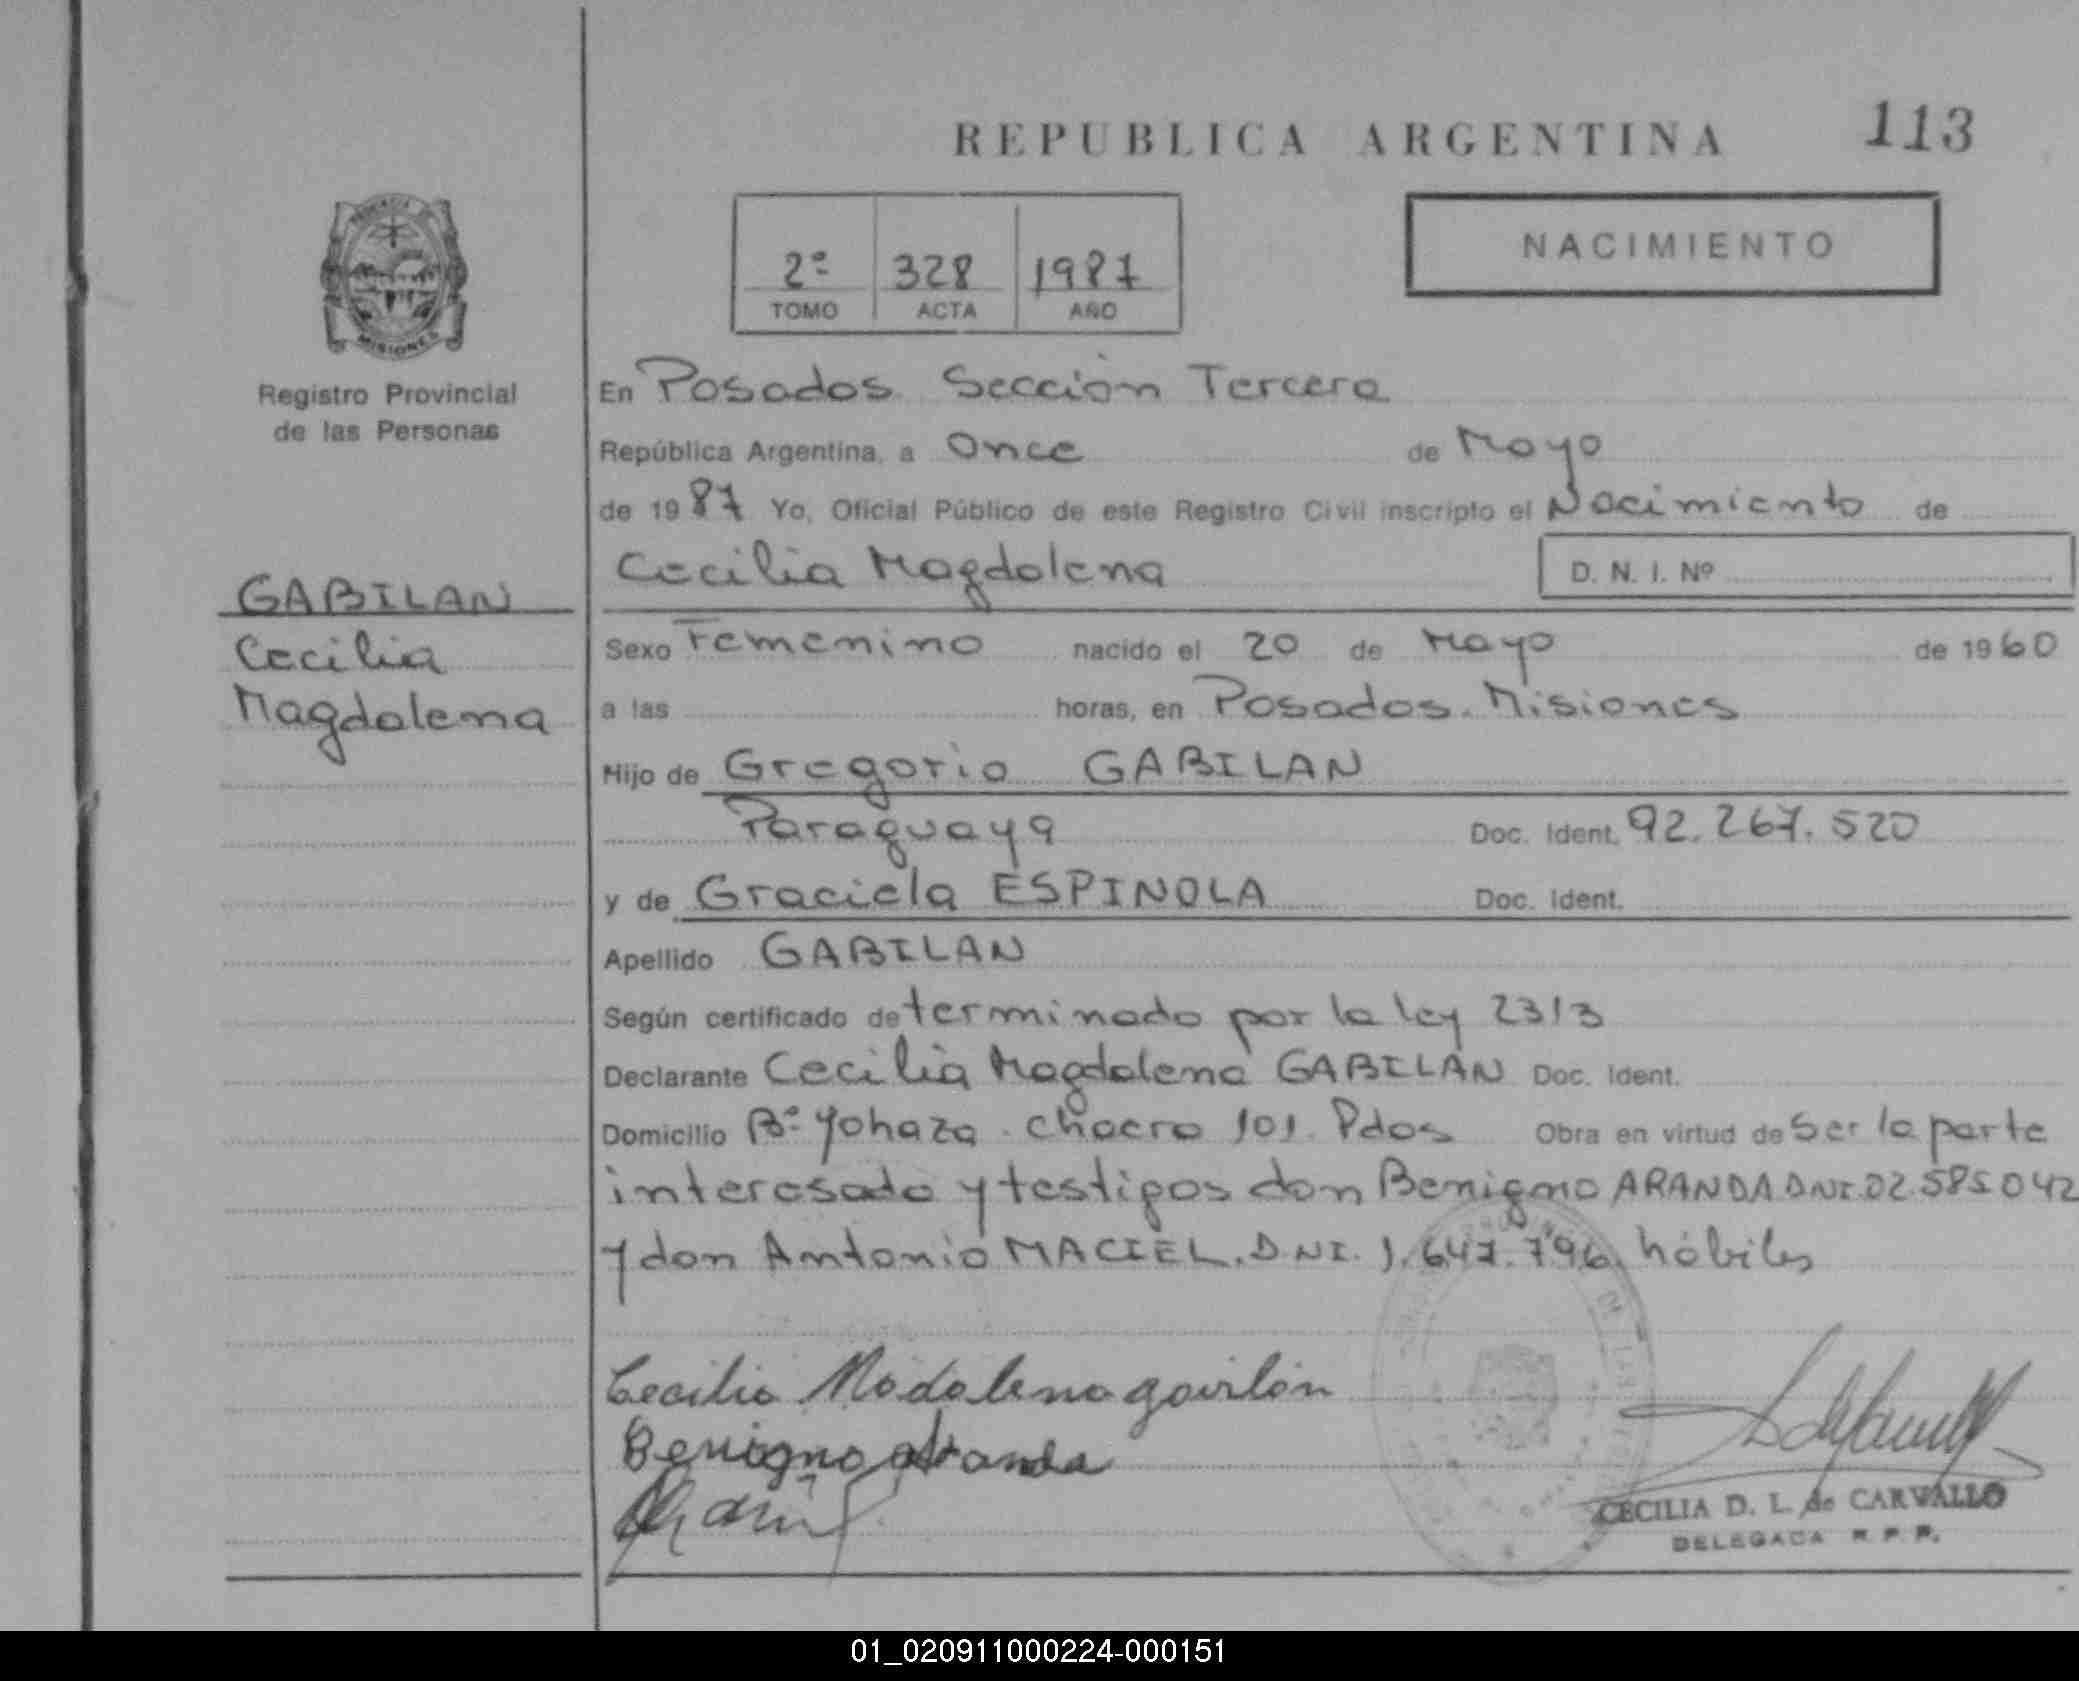 REPUBLICA ARGENTINA 113
NACIMIENTO
2º 328 1987
TOMO ACTA AÑO
MISIONES
Registro Provincial
de las Personas
GABILAN
Cecilia
Magdalena
En Posadas. Sección Tercera
República Argentina, a Once de Mayo
de 1987 Yo, Oficial Público de este Registro Civil inscripto el Nacimiento de
Cecilia Magdalena D. N. I. Nº
Sexo Femenino nacido el 20 de Mayo de 1960
a las horas, en Posadas. Misiones
Hijo de Gregorio GABILAN
Paraguaya Doc. Ident. 92.267.520
y de Graciela ESPINOLA Doc. Ident.
Apellido GABILAN
Según certificado determinado por la ley 2313
Declarante Cecilia Magdalena GABILAN Doc. Ident.
Domicilio Bº Yohaza. chacra 101. Pdas Obra en virtud de ser la parte
interesada y testigos don Benigno ARANDA DNI.02.585042
y don Antonio MACIEL. DNI. 1.647.796. hábiles
Cecilia Madalena gavilán
Benigno Aranda
CECILIA D. L. de CARVALLO
DELEGADA R. P. P.
01_020911000224-000151